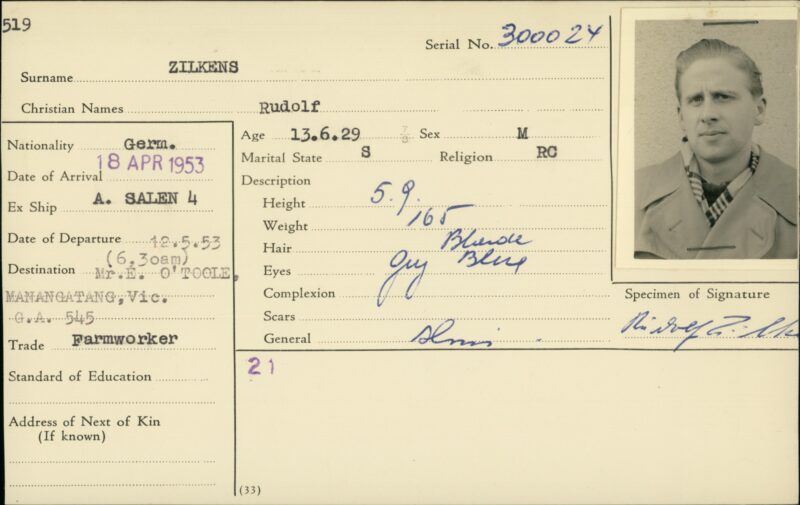 519
Serial No. 300024
Surname ZILKENS
Christian Names Rudolf
Nationality Germ.
Date of Arrival 18 APR 1953
Ex Ship A. SALEN 4
Date of Departure 12.5.53
(6.30am)
Destination Mr.E. O'TOOLE,
MANANGATANG,Vic.
G.A. 545
Trade Farmworker
Standard of Education
Address of Next of Kin
(If known)
Age 13.6.29 Sex M
Marital State S Religion RC
Description
Height 5.9.
Weight 165
Hair Blonde
Eyes Grey Blue
Complexion
Scars
General
21
(33)
Specimen of Signature
Rudolf